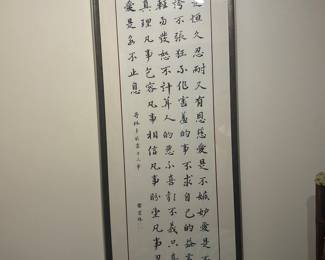 是恆久忍耐又有恩慈愛是不嫉妒愛是不
誇不張狂不作害羞的事不求自己的益處
輕易發怒不計算人的惡不喜歡不義只喜
真理凡事包容凡事相信凡事盼望凡事忍
愛是永不止息
哥林多前書十三章